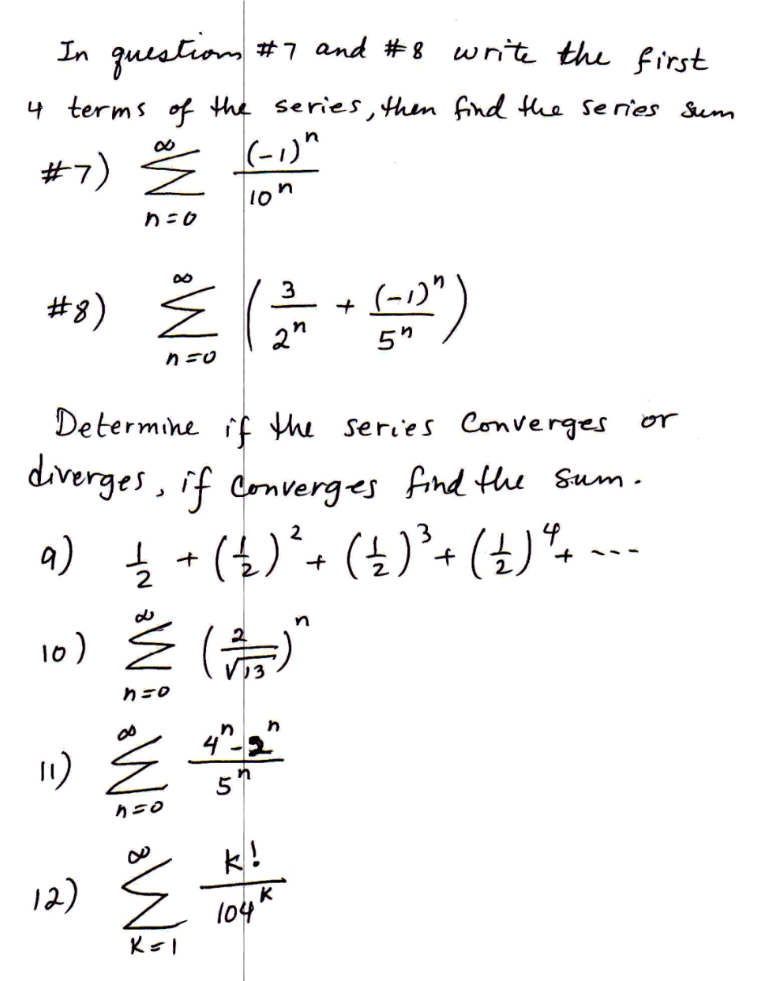 In questions #7 and #8 write the first
4 terms of the series, then find the series sum
#7) ∞ Σ n=0 (-1)^n / 10^n
#8) ∞ Σ n=0 ( 3 / 2^n + (-1)^n / 5^n )
Determine if the series Converges or
diverges, if converges find the sum.
9) 1/2 + (1/2)^2 + (1/2)^3 + (1/2)^4 + ----
10) ∞ Σ n=0 ( 2 / √13 )^n
11) ∞ Σ n=0 4^n - 2^n / 5^n
12) ∞ Σ K=1 k! / 104^K